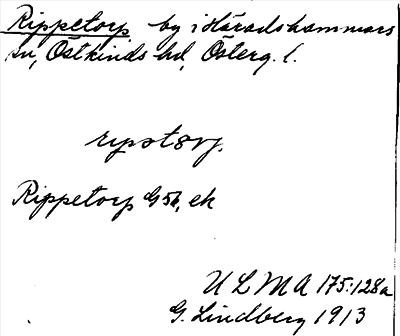 Rippetorp by i Häradshammars
sn, Östkinds hd, Österg. l.
rypstørj.
Rippetorp G 56, ek
ULMA 175:128a
G. Lindberg 1913